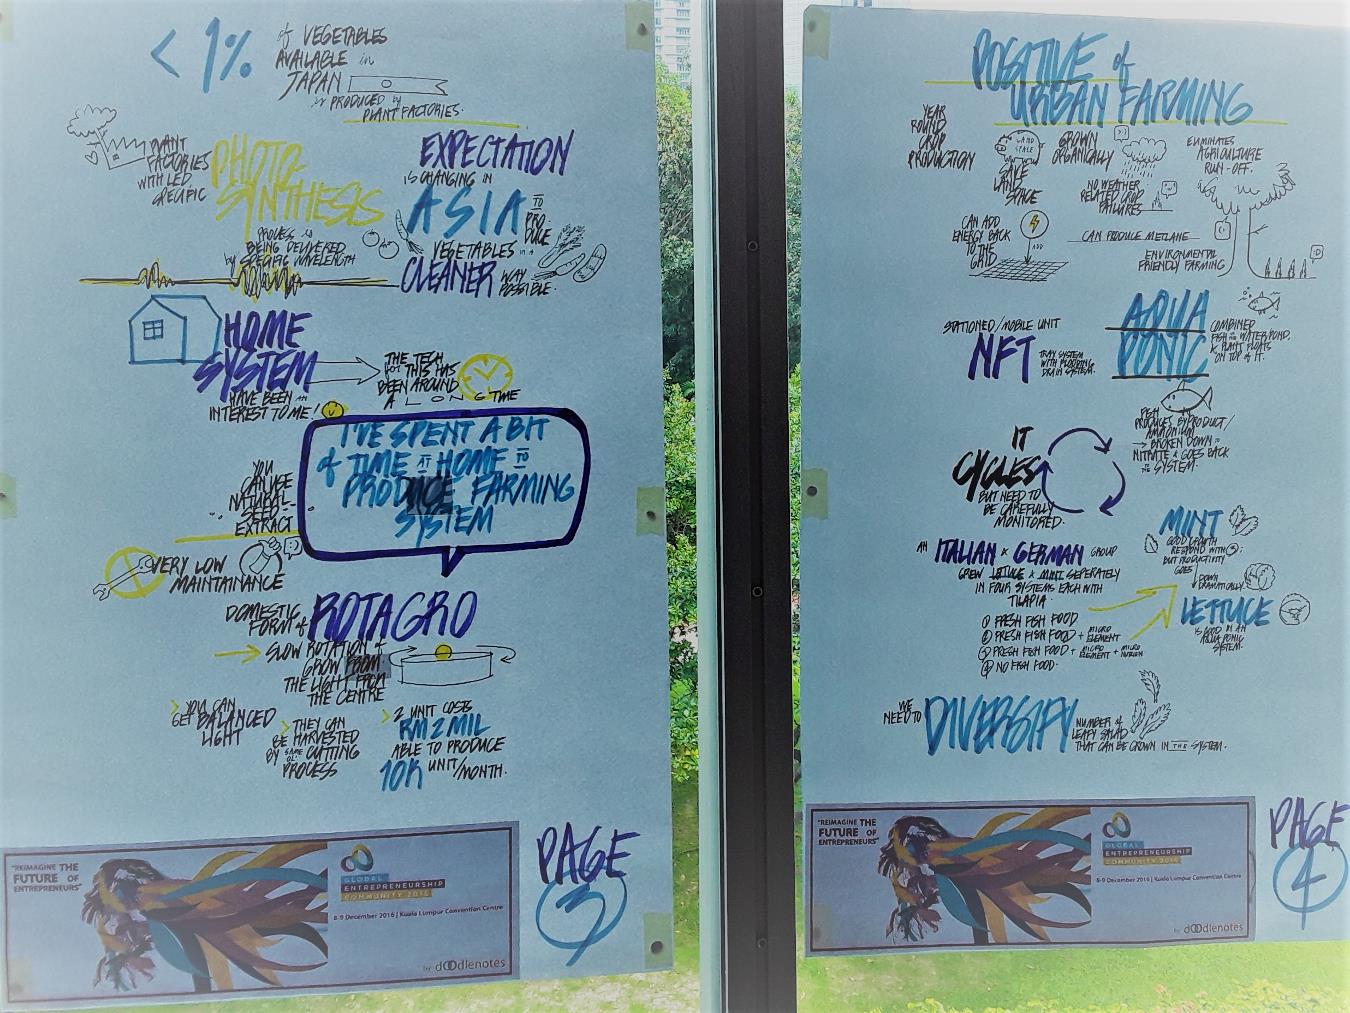 < 1%
of VEGETABLES
AVAILABLE in
JAPAN
is PRODUCED by
PLANT FACTORIES.
PLANT
FACTORIES
WITH LED
SPECIFIC
PHOTO-
SYNTHESIS
PROCESS is
BEING DELIVERED
by SPECIFIC WAVELENGTH
EXPECTATION
IS CHANGING IN
ASIA TO
PRO-
DUCE
VEGETABLES in a
CLEANER WAY
POSSIBLE.
HOME
SYSTEM
HAVE BEEN an
INTEREST TO ME!
THE TECH
for THIS HAS
BEEN AROUND
A LONG TIME
I'VE SPENT A BIT
of TIME AT HOME TO
PRODUCE FARMING
SYSTEM
YOU
CAN USE
NATURAL-
SEED
EXTRACT
VERY LOW
MAINTAINANCE
DOMESTIC
FORM of ROTAGRO
SLOW ROTATION of
GROW FROM
THE LIGHT FROM
THE CENTRE
YOU CAN
GET BALANCED
LIGHT
THEY CAN
BE HARVESTED
BY SAME CUTTING
PROCESS
2 UNIT COSTS
RM2MIL
ABLE TO PRODUCE
10K UNIT/MONTH.
"REIMAGINE THE
FUTURE OF
ENTREPRENEURS"
GLOBAL
ENTREPRENEURSHIP
COMMUNITY 2016
8-9 December 2016 | Kuala Lumpur Convention Centre
by dOOdlenotes
PAGE
3
POSITIVE of
URBAN FARMING
YEAR
ROUND
CROP
PRODUCTION
LAND
SPACE
SAVE
LAND
SPACE
GROWN
ORGANICALLY
NO WEATHER
RELATED CROP
FAILURES
ELIMINATES
AGRICULTURE
RUN-OFF.
CAN ADD
ENERGY BACK
TO THE
GRID
ADD
CAN PRODUCE METLANE
ENVIRONMENTAL
FRIENDLY FARMING
STATIONED/MOBILE UNIT
NFT TRAY SYSTEM
WITH FLOODING
DRAIN SYSTEM.
AQUA
PONIC
COMBINED
FISH in the WATER/POND.
& PLANT FLOATS
ON TOP of IT.
FISH
PRODUCES BYPRODUCT/
AMMONIUM
→ BROKEN DOWN to
NITRATE & GOES BACK
to the SYSTEM.
IT
CYCLES
BUT NEED TO
BE CAREFULLY
MONITORED.
AN ITALIAN & GERMAN GROUP
GREW LETTUCE & MINT SEPERATELY
IN FOUR SYSTEMS EACH WITH
TILAPIA.
1 FRESH FISH FOOD
2 FRESH FISH FOOD + MICRO ELEMENT
3 FRESH FISH FOOD + MICRO ELEMENT + MICRO NUTRIEN
4 NO FISH FOOD.
MINT
GOOD GROWTH
RESPOND WITH 3.
BUT PRODUCTIVITY
GOES
DOWN
DRAMATICALLY.
LETTUCE
IS GOOD IN AN
AQUA PONIC
SYSTEM.
WE
NEED TO DIVERSIFY NUMBER of
LEAFY SALAD
THAT CAN BE GROWN IN THE SYSTEM.
"REIMAGINE THE
FUTURE OF
ENTREPRENEURS"
GLOBAL
ENTREPRENEURSHIP
COMMUNITY 2016
8-9 December 2016 | Kuala Lumpur Convention Centre
by dOOdlenotes
PAGE
4